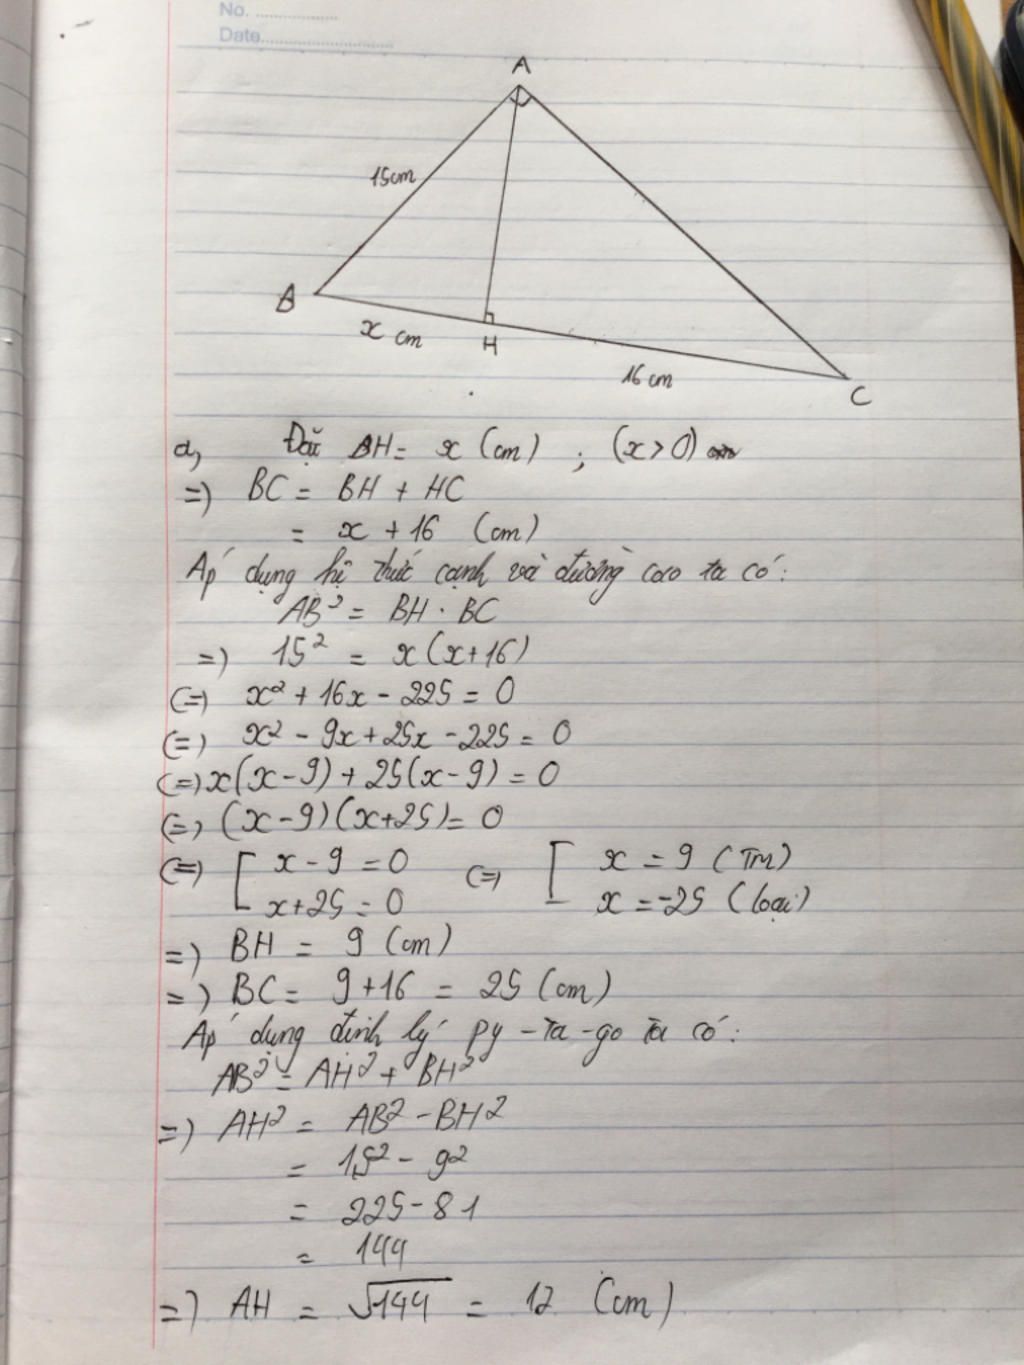 No. ..................
Date..............................
A
15cm
B
x cm
H
16 cm
C
a, Đặt BH = x (cm) ; (x > 0)
=> BC = BH + HC
= x + 16 (cm)
Áp dụng hệ thức cạnh và đường cao ta có:
AB² = BH . BC
=> 15² = x(x+16)
(=) x² + 16x - 225 = 0
(=) x² - 9x + 25x - 225 = 0
(=) x(x-9) + 25(x-9) = 0
(=) (x-9)(x+25) = 0
(=) [ x - 9 = 0 (=) [ x = 9 (TM)
x + 25 = 0 x = -25 (loại)
=> BH = 9 (cm)
=> BC = 9 + 16 = 25 (cm)
Áp dụng định lý py-ta-go ta có:
AB² = AH² + BH²
=> AH² = AB² - BH²
= 15² - 9²
= 225 - 81
= 144
=> AH = √144 = 12 (cm)